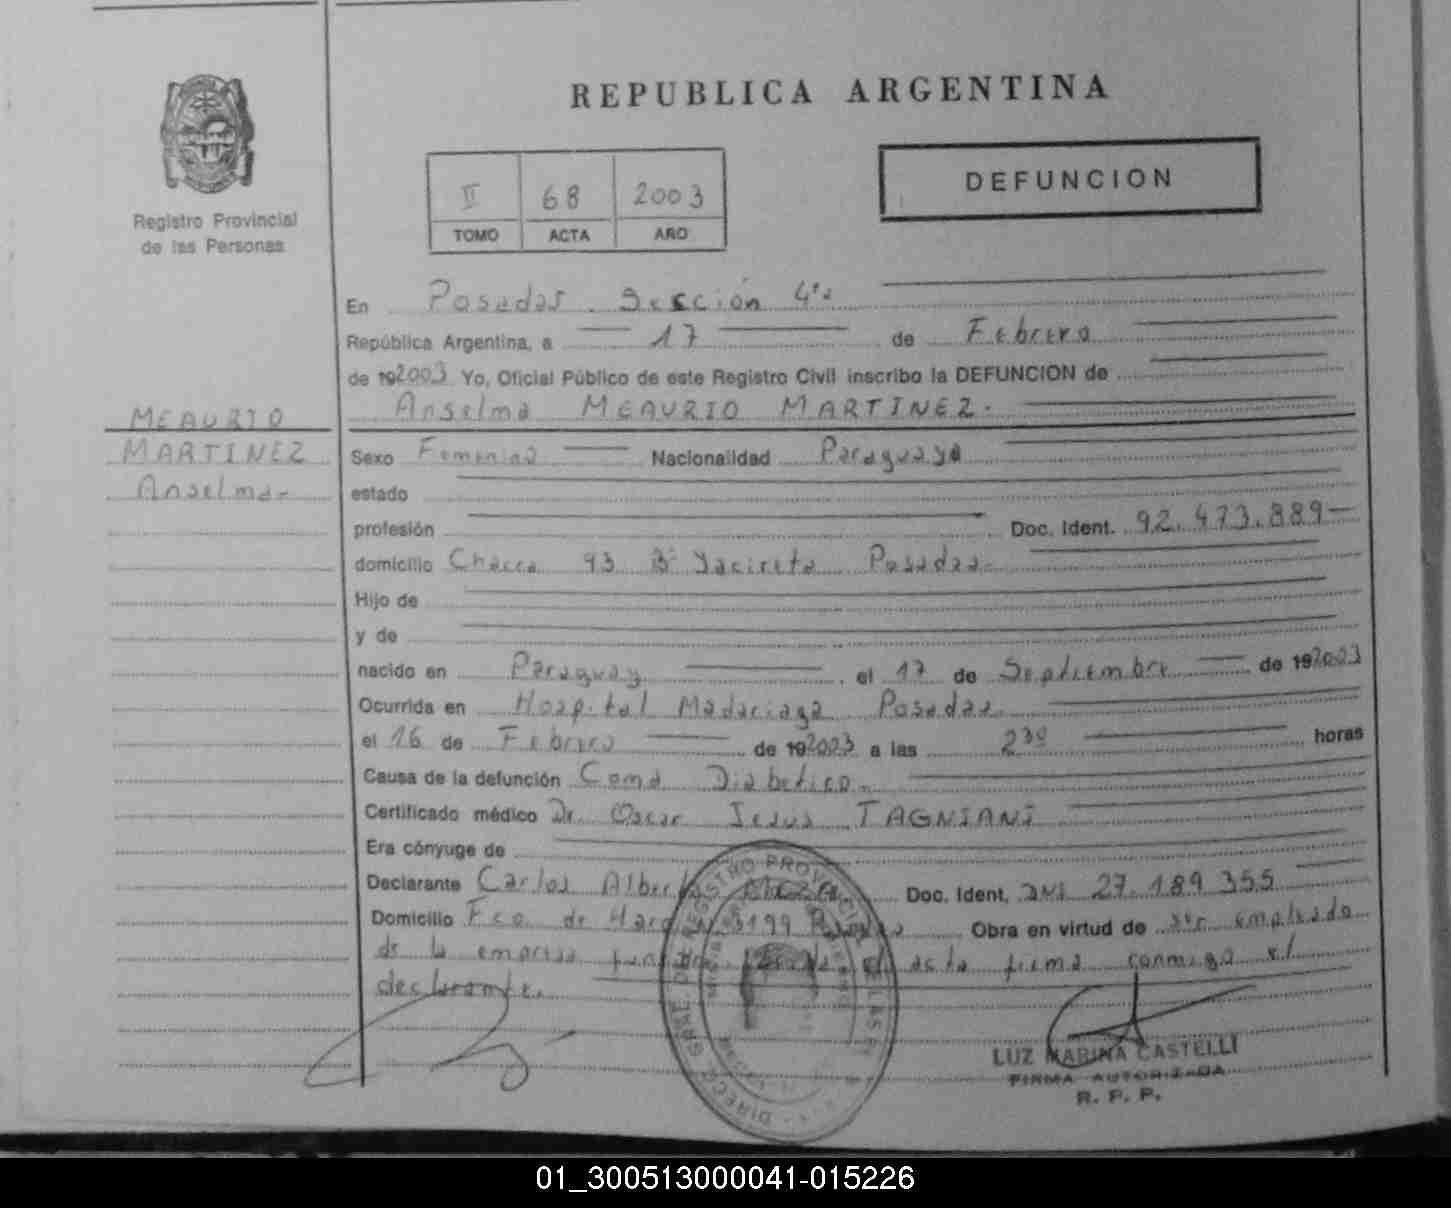 REPUBLICA ARGENTINA
Registro Provincial
de las Personas
II 68 2003
TOMO ACTA AÑO
DEFUNCION
En Posadas Sección 4ta
República Argentina, a 17 de Febrero
de 192003 Yo, Oficial Público de este Registro Civil inscribo la DEFUNCION de
Anselma MEAURIO MARTINEZ.
MEAURIO
MARTINEZ
Anselma-
Sexo Femenino Nacionalidad Paraguaya
estado
profesión Doc. Ident. 92.473.889-
domicilio Chacra 93 Bº Yacireta Posadas-
Hijo de
y de
nacido en Paraguay, el 17 de Septiembre de 192003
Ocurrida en Hospital Madariaga Posadas.
el 16 de Febrero de 192003 a las 23º horas
Causa de la defunción Coma Diabetico.
Certificado médico Dr. Oscar Jesus TAGNIANI
Era cónyuge de
Declarante Carlos Alberto Doc. Ident, DNI 27.189.355
Domicilio Fco. de Haro 3199 Posadas Obra en virtud de ser empleado
de la empresa acta firma conmigo el
declarante.
LUZ MARINA CASTELLI
FIRMA AUTORIZADA
R. P. P.
01_300513000041-015226